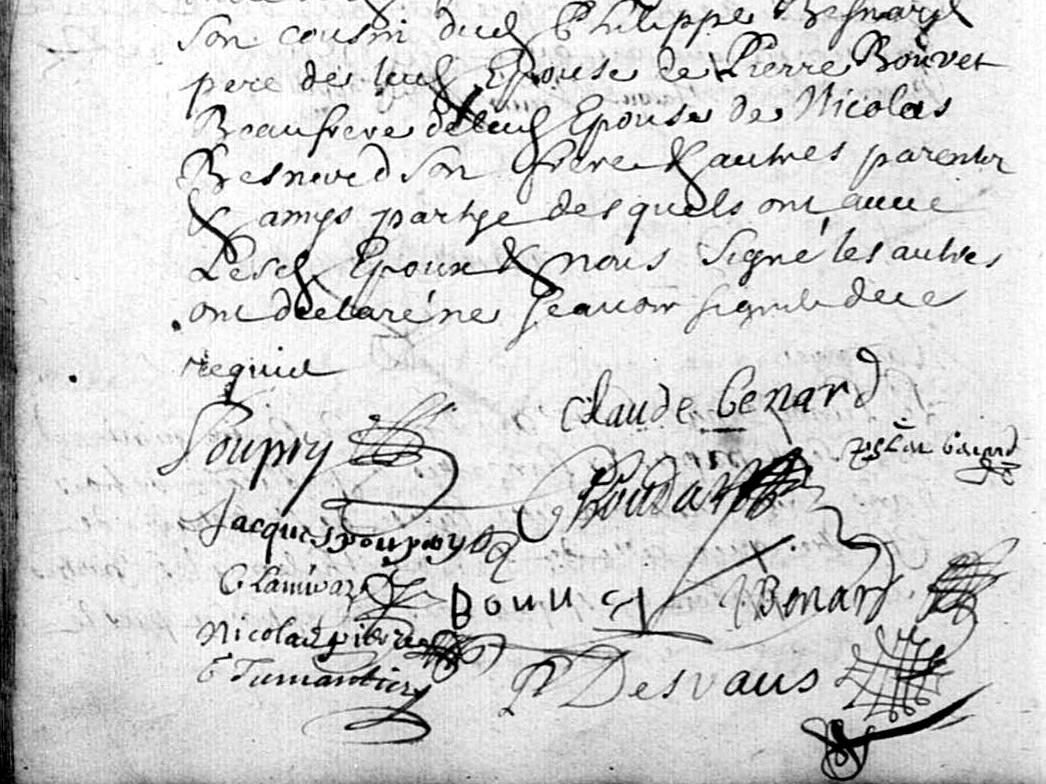 son cousin dud Philippe Besnard
pere de lad Epouse de Pierre Bouvet
Beaufrere de lad Epouse de Nicolas
Besnard son frere & autres parents
& amys partye desquels ont avec
Lesd Epoux & nous Signé les autres
ont declaré ne scavoir signer de ce
requis
Claude Benard
Poupry
Boudard
Jacques poupry
Bouvet Benard
Nicolas pierre
P Desvaus